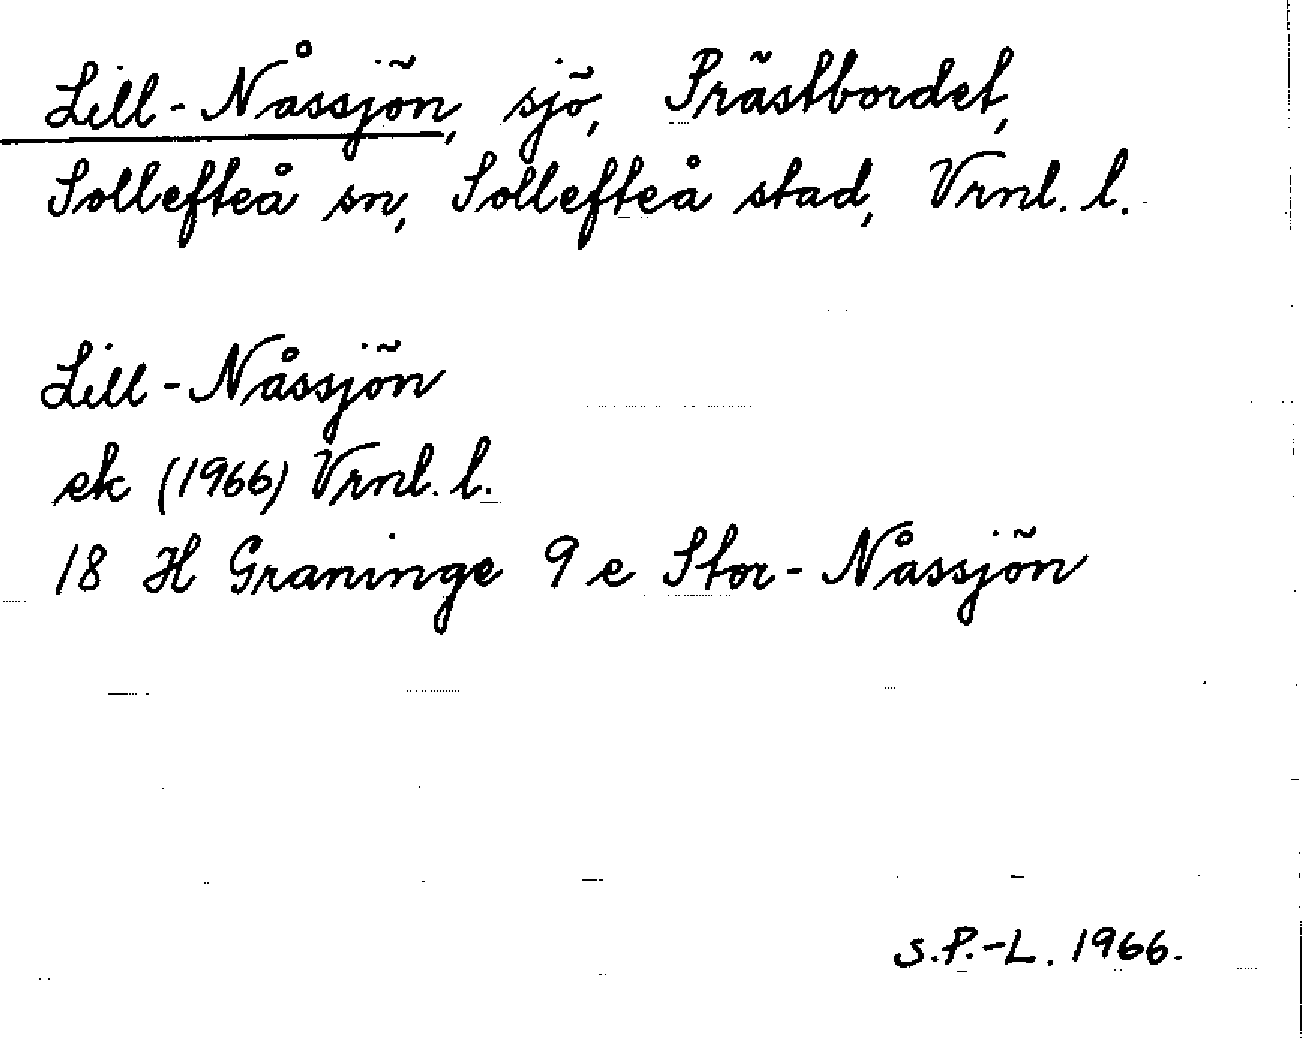 Lill-Nåssjön, sjö, Prästbordet,
Sollefteå sn, Sollefteå stad, Vrnl. l.
Lill-Nåssjön
ek (1966) Vrnl. l.
18 H Graninge 9 e Stor-Nåssjön
S.P.-L. 1966.